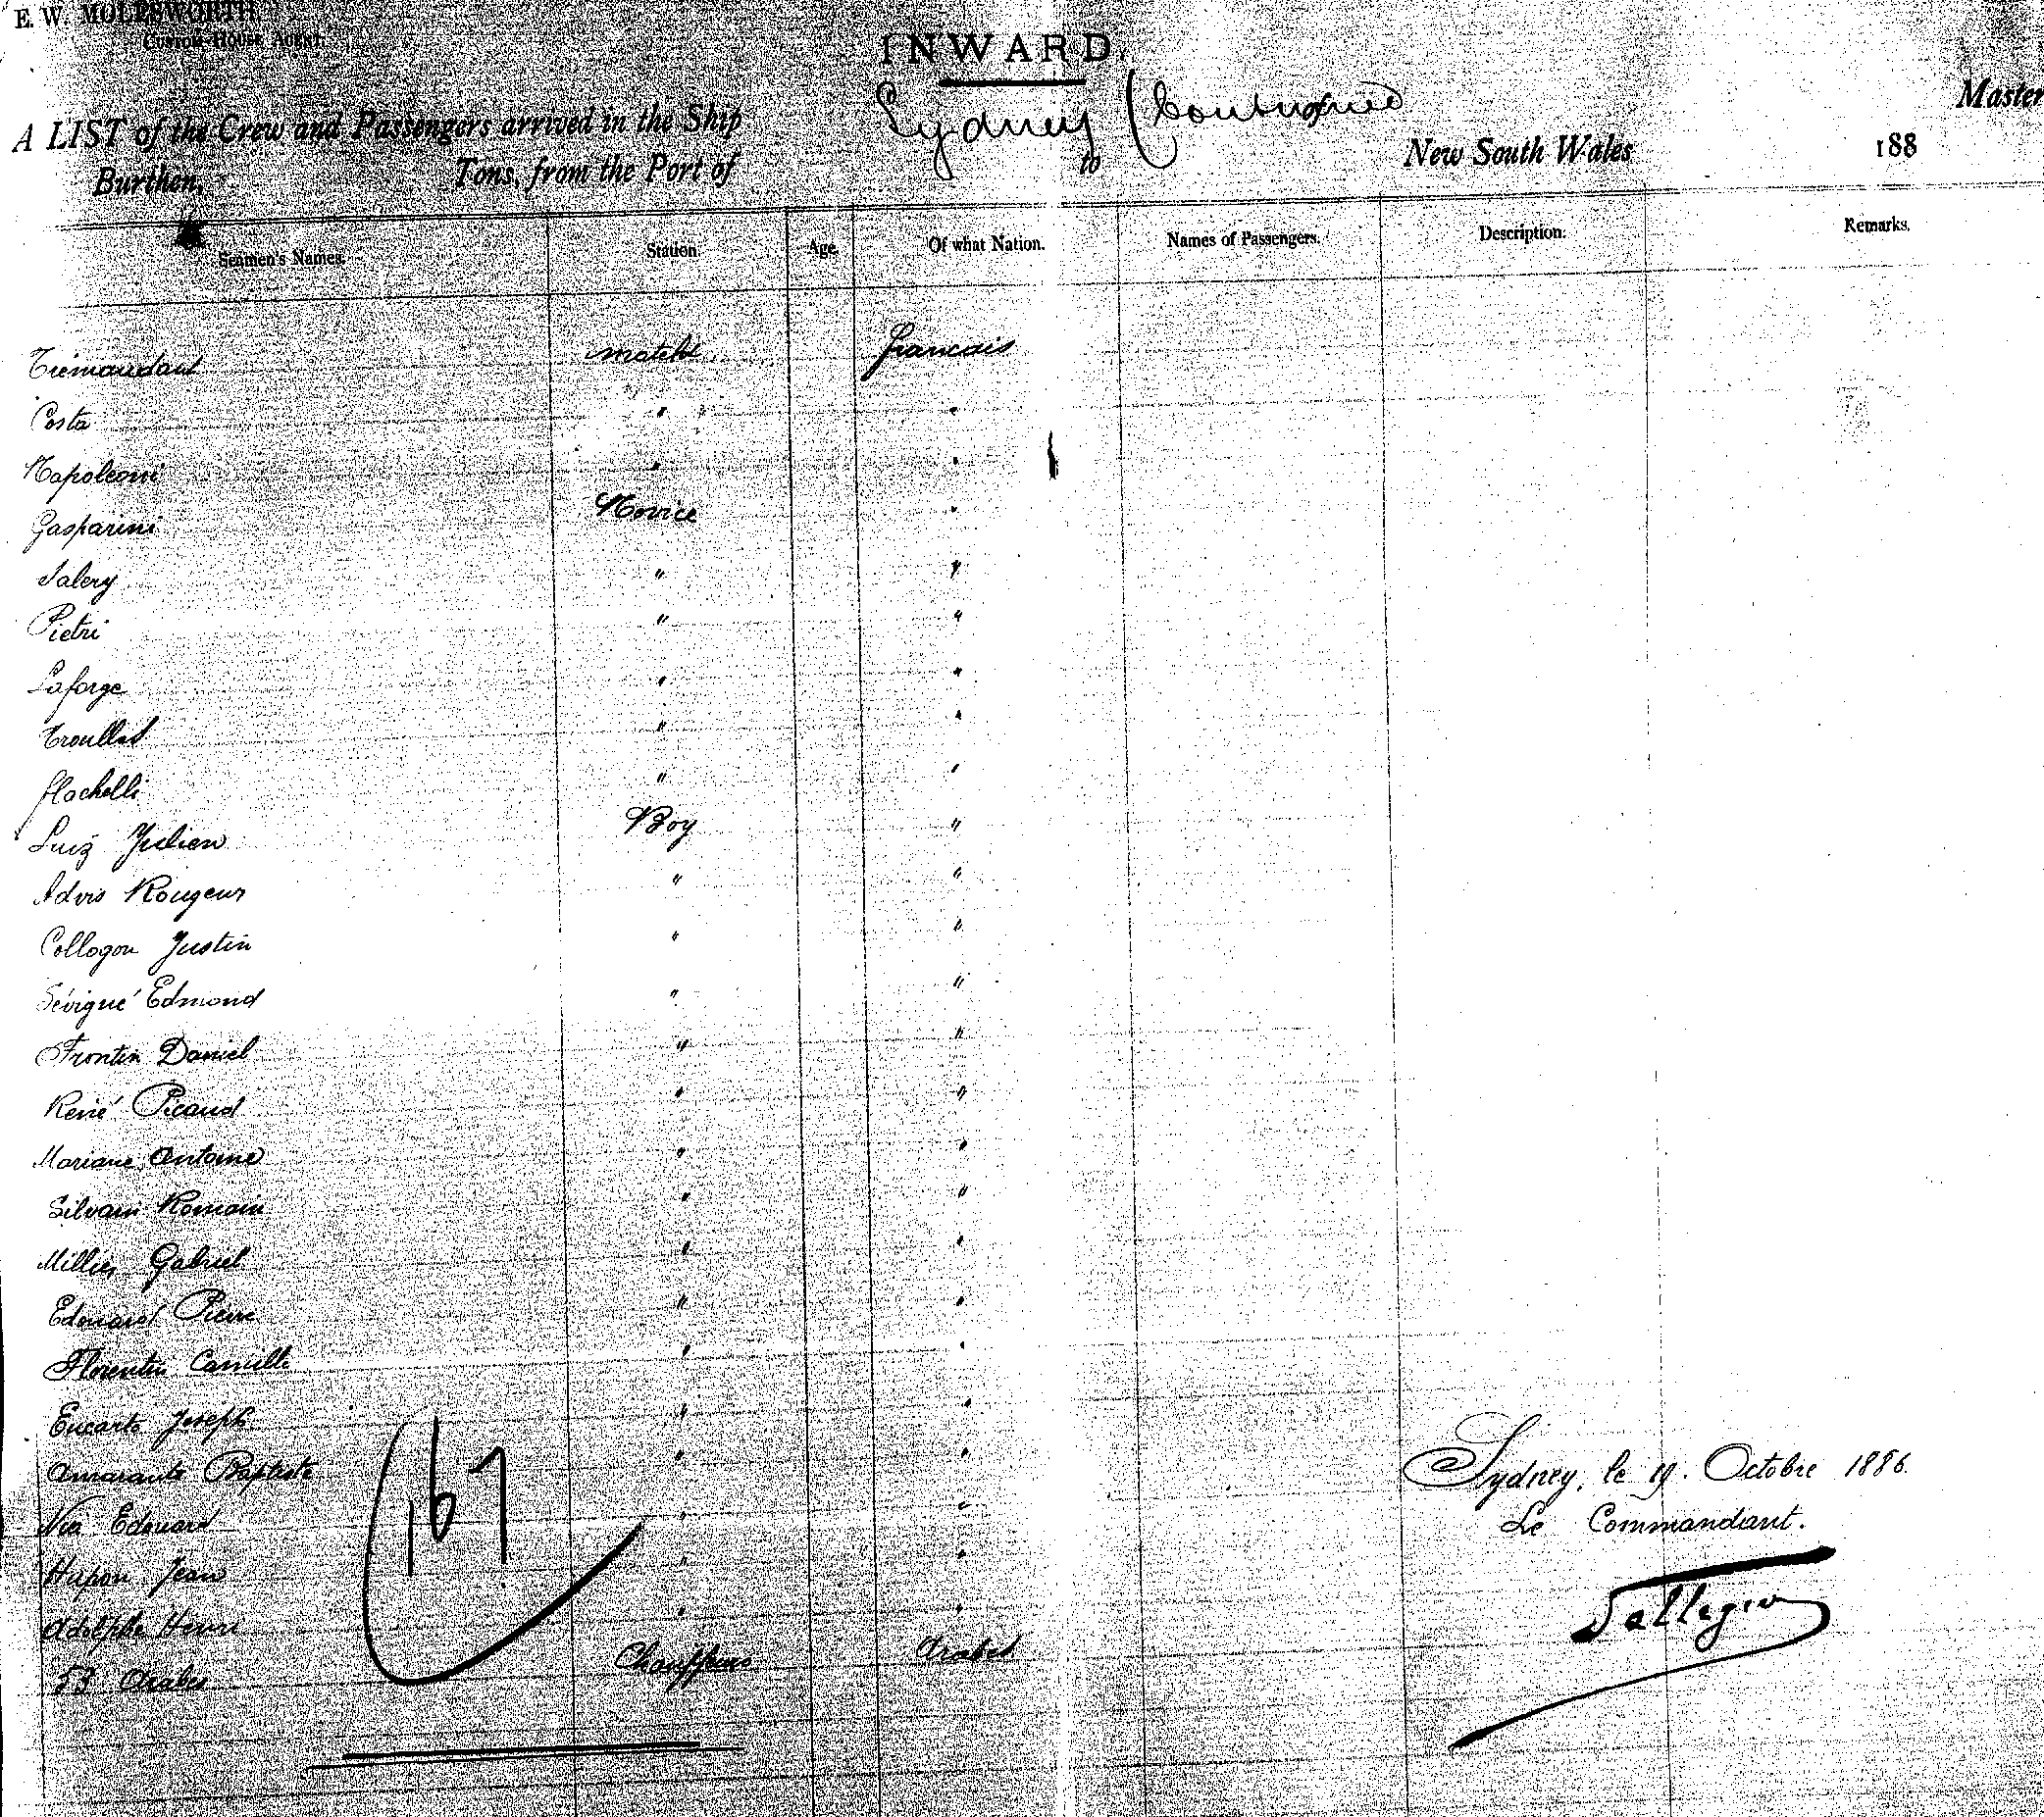 E. W. MOLESWORTH,
CUSTOM-HOUSE AGENT.
INWARD.
Sydney (Continued
A LIST of the Crew and Passengers arrived in the Ship Master
Burthen, Tons, from the Port of to New South Wales 188
Seamen's Names. Station. Age. Of what Nation. Names of Passengers. Description. Remarks.
Trémaudant matelot francais
Costa " "
Napoleoni " "
Gasparini Novice "
Salery " "
Pietri " "
Laforge " "
Troullet " "
flachelli " "
Luiz Julien Boy "
Advis Rougeur " "
Collogon Justin " "
Sévigné Edmond " "
Frontin Daniel " "
René Picaud " "
Mariane Antoine " "
Silvain Romain " "
Millier Gabriel " "
Edouard Pierre " "
Florentin Camille " "
Encarto Joseph " "
Amarante Baptiste " "
Nia Edouard " "
Hupon Jean " "
Adolphe Henri " "
53 Arabes Chauffeurs Arabes
167
Sydney, le 19. Octobre 1886.
Le Commandant.